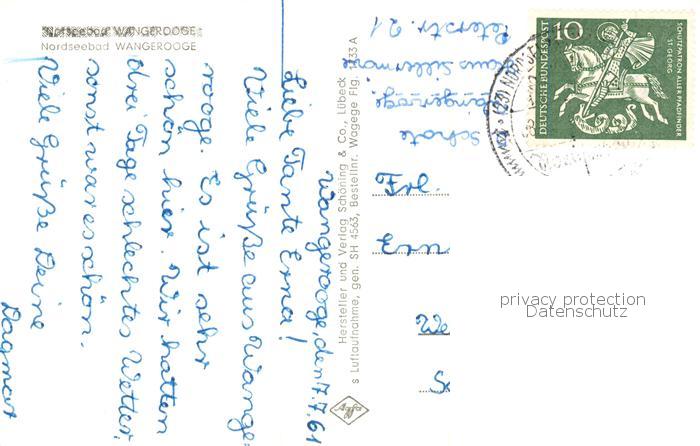 Nordseebad WANGEROOGE
Nordseebad WANGEROOGE
Wangerooge, den 7.7.61
Liebe Tante Erna!
Viele Grüße aus Wange-
rooge. Es ist sehr
schön hier. Wir hatten
drei Tage schlechtes Wetter,
sonst war es schön.
Viele Grüße Deine
Dagmar
Hersteller und Verlag Schöning & Co., Lübeck
s Luftaufnahme, gen. SH 4563, Bestellnr. Wagege Flg. 1233 A
Agfa
Peterstr. 21
Haus Sillermarie
Wangerooge
Frl.
Ern
We
S
10
DEUTSCHE BUNDESPOST
SCHUTZPATRON ALLER PFADFINDER
ST. GEORG
privacy protection
Datenschutz